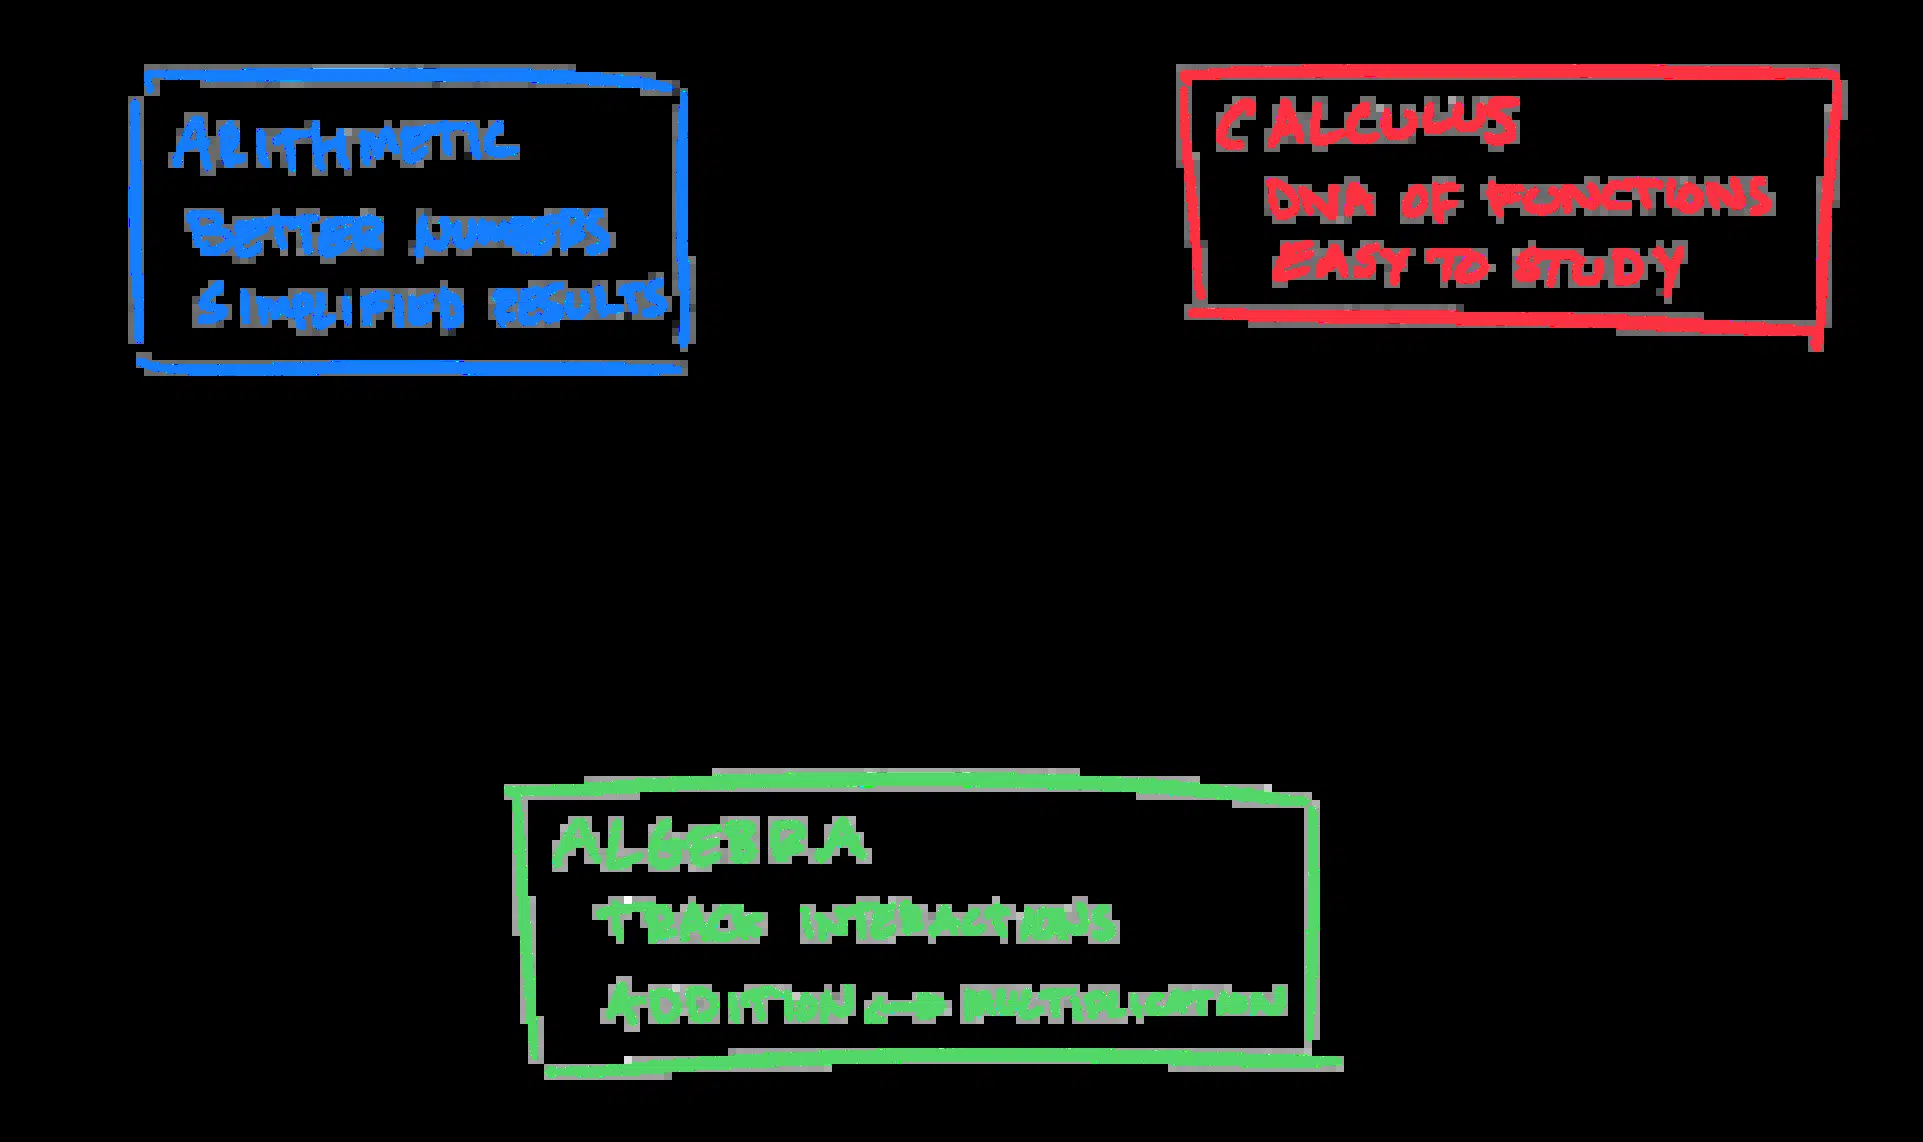 ARITHMETIC
BETTER NUMBERS
SIMPLIFIED RESULTS
CALCULUS
DNA OF FUNCTIONS
EASY TO STUDY
ALGEBRA
TRACK INTERACTIONS
ADDITION ↔ MULTIPLICATION